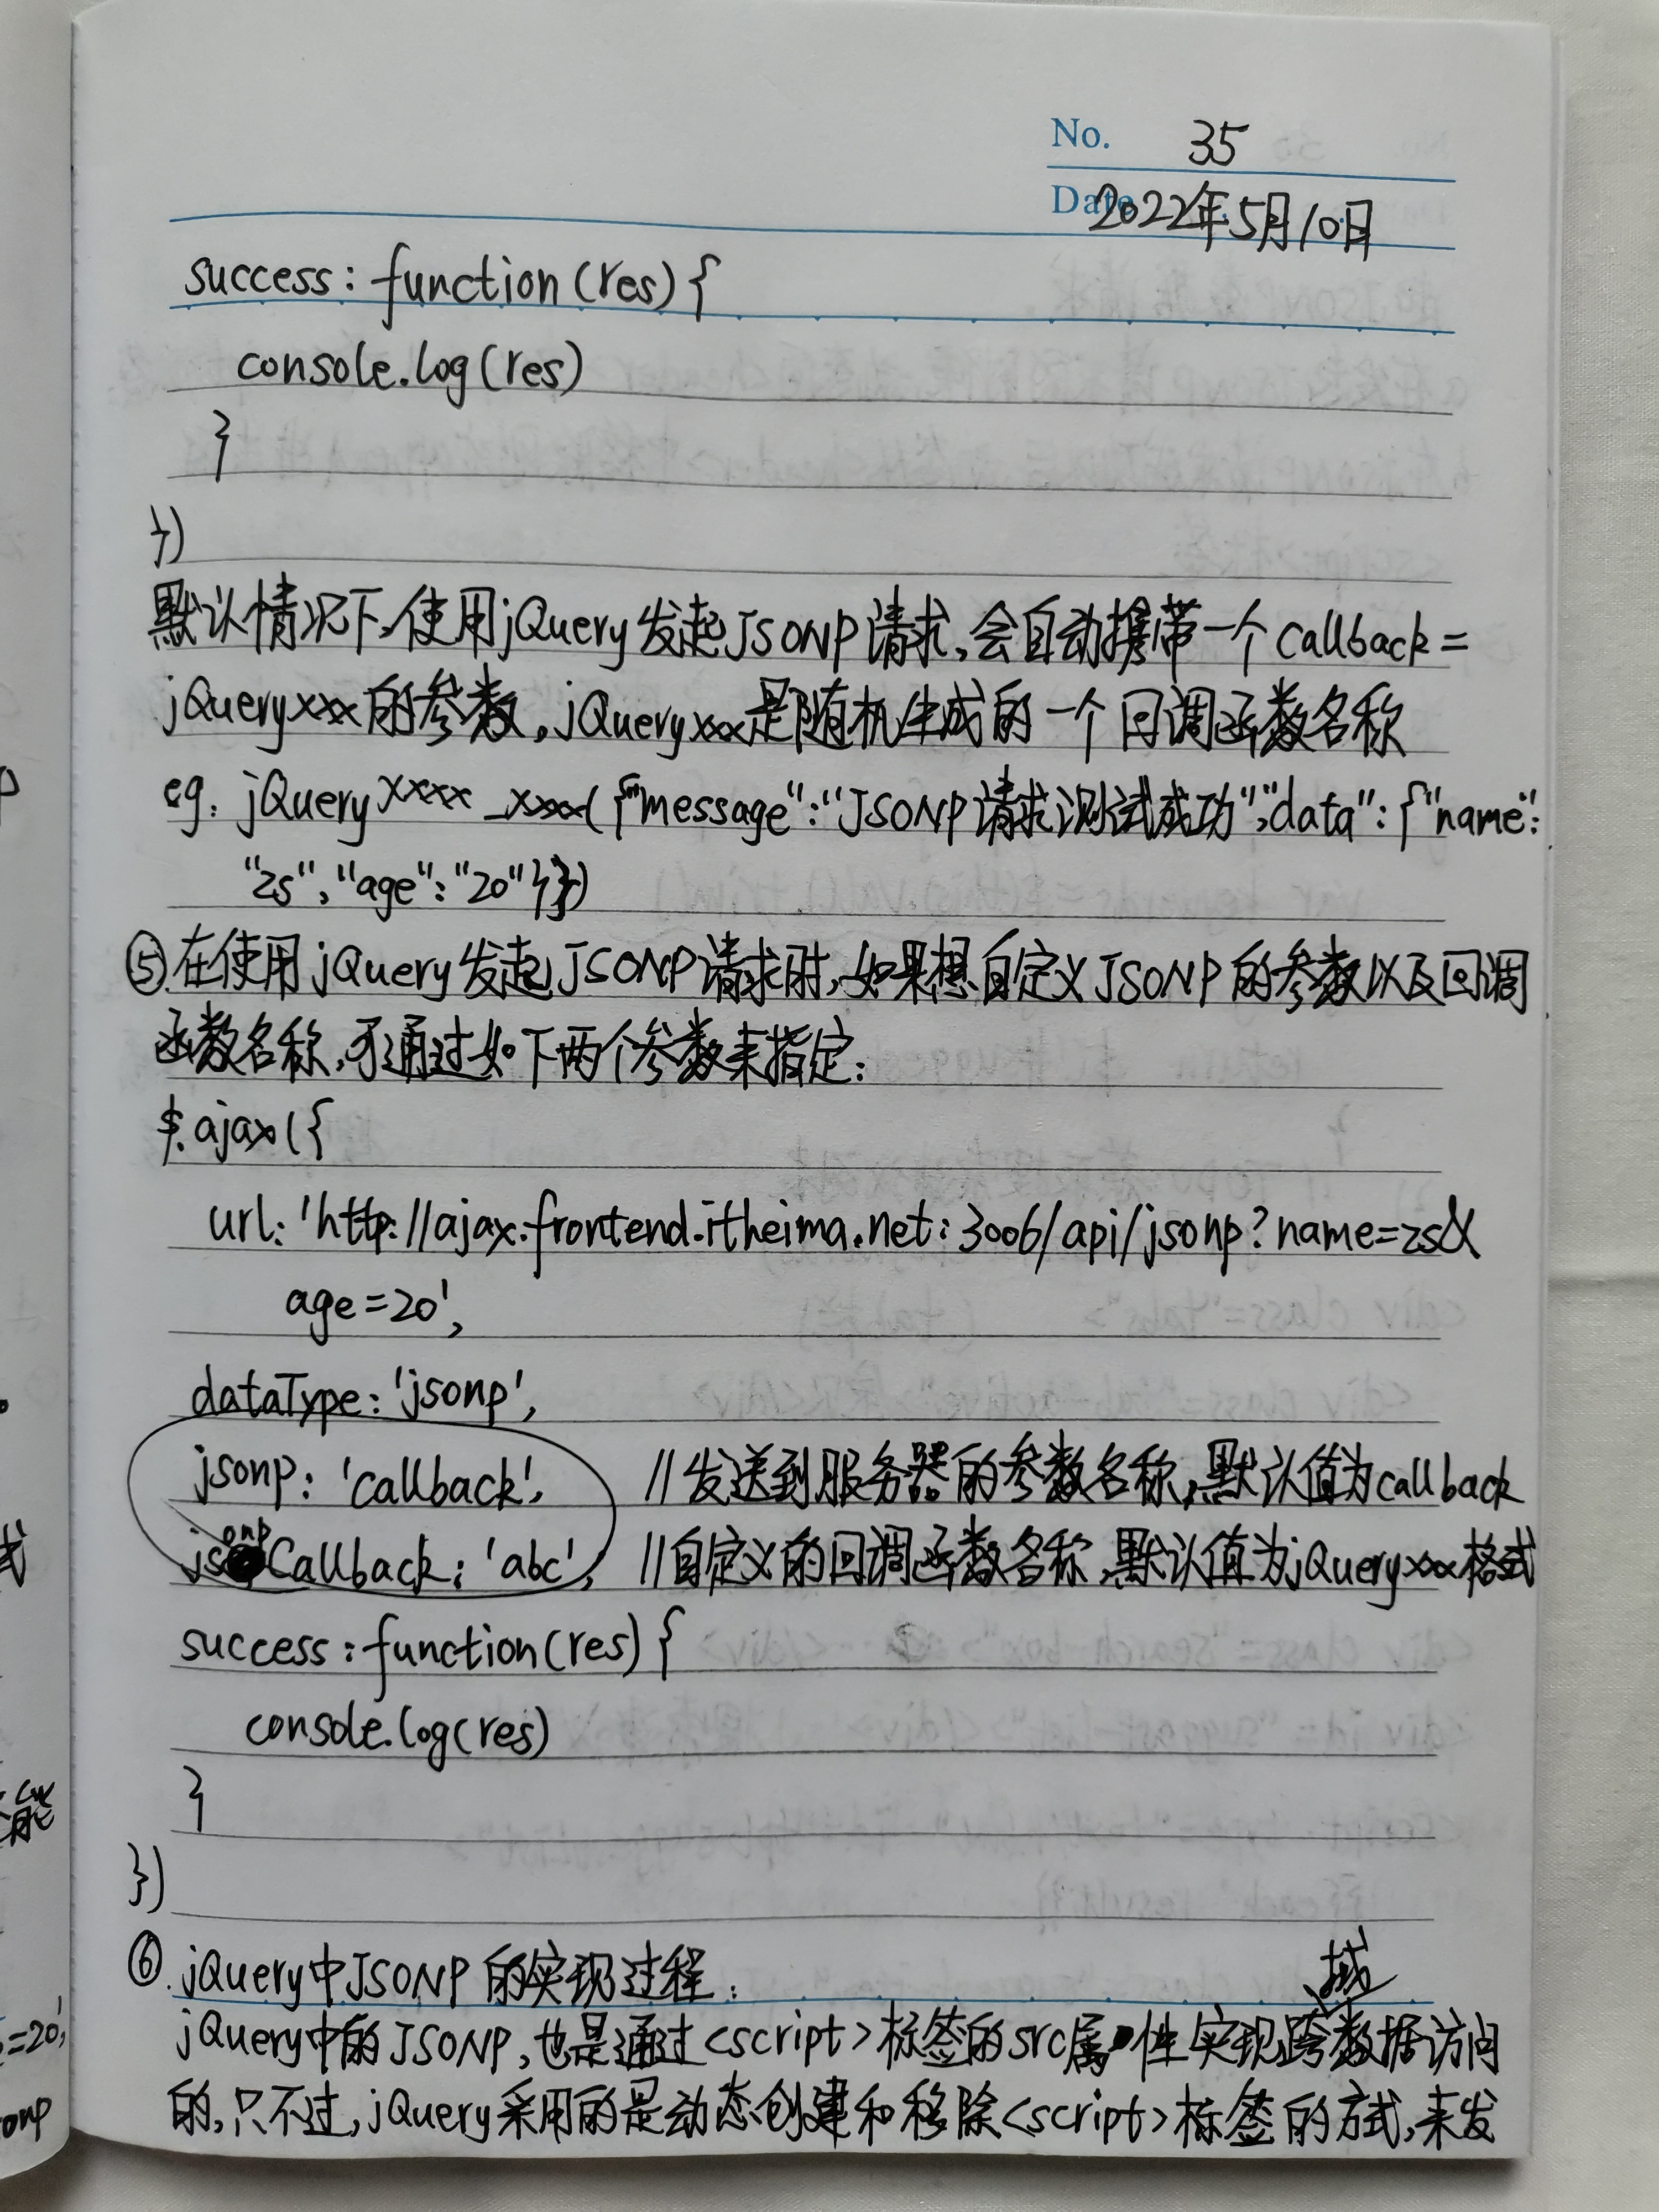 No. 35
Date 2022年5月10日
success: function(res) {
console.log(res)
}
})
默认情况下,使用jQuery发起JSONP请求,会自动携带一个callback=
jQueryxxx的参数,jQueryxxx是随机生成的一个回调函数名称
eg: jQueryxxxx_xxxx({"message":"JSONP请求测试成功","data":{"name":
"zs","age":"20"}})
⑤在使用jQuery发起JSONP请求时,如果想自定义JSONP的参数以及回调
函数名称,可通过如下两个参数来指定:
$.ajax({
url: 'http://ajax.frontend.itheima.net:3006/api/jsonp?name=zs&
age=20',
dataType: 'jsonp',
jsonp: 'callback', //发送到服务器的参数名称,默认值为callback
jsonpCallback: 'abc', //自定义的回调函数名称,默认值为jQueryxxx格式
success: function(res) {
console.log(res)
}
})
⑥.jQuery中JSONP的实现过程:
jQuery中的JSONP,也是通过<script>标签的src属性实现跨域数据访问
的,只不过,jQuery采用的是动态创建和移除<script>标签的方式,来发